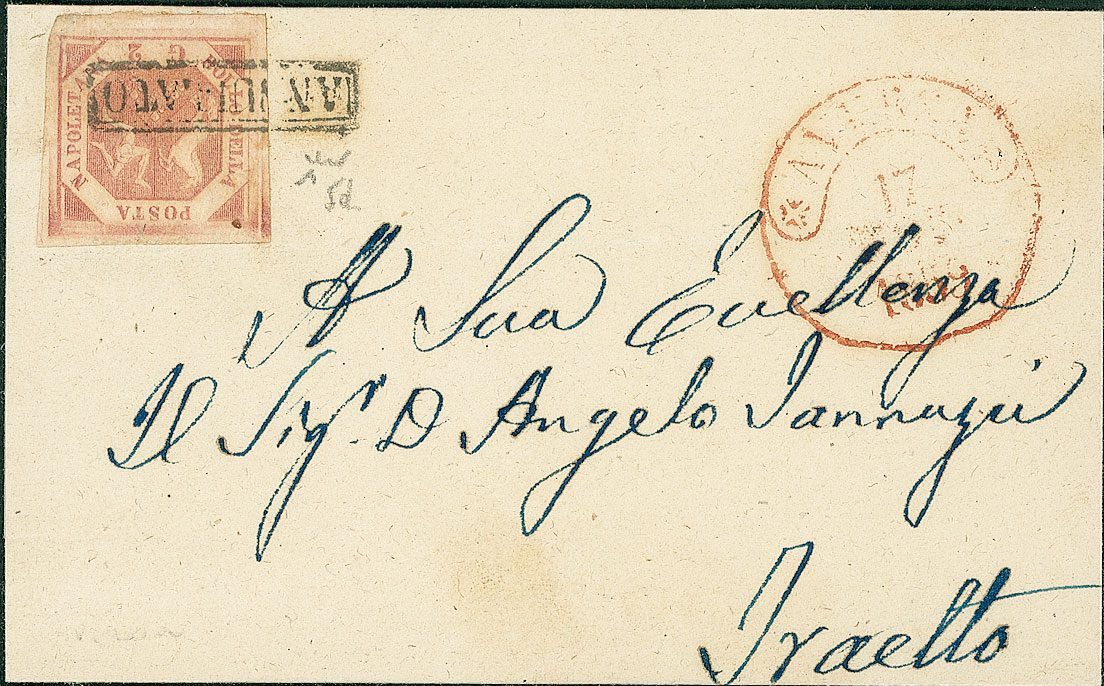 G 2
BOLLO DELLA
POSTA
NAPOLETANA
ANNULLATO
17
A Sua Eccellenza
Il Sigr. D Angelo Iannuzzi
Traetto